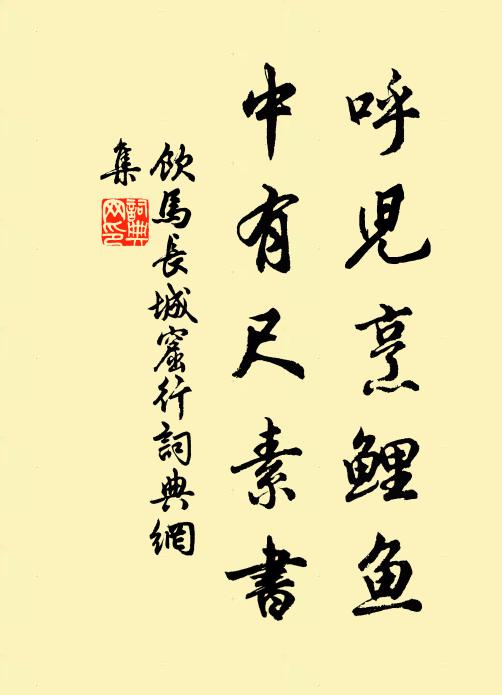 呼児烹鲤鱼
中有尺素書
飲馬長城窟行詞典網
集
詞典
网印